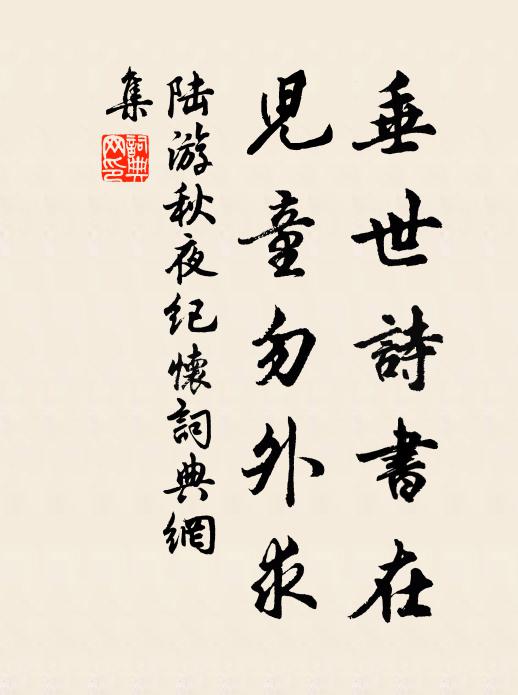 垂世詩書在
兒童勿外求
陸游秋夜纪懷詞典網
集
詞典
网印